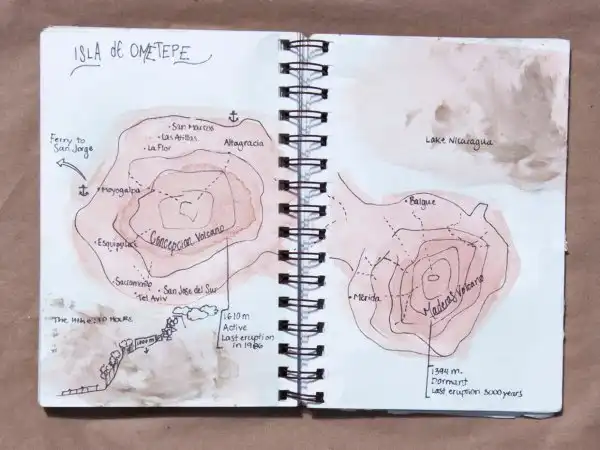 ISLA de OMETEPE
San Marcos
Las Atillas
La Flor
Altagracia
Ferry to
San Jorge
Moyogalpa
Concepcion Volcano
Esquipulas
Sacramento
Tel Aviv
San Jose del Sur
The Hike: 10 HOURS
1000 m
1610 m
Active
Last eruption
in 1986
Lake Nicaragua
Balgue
Mérida
Maderas Volcano
1394 m.
Dormant
Last eruption 3000 years